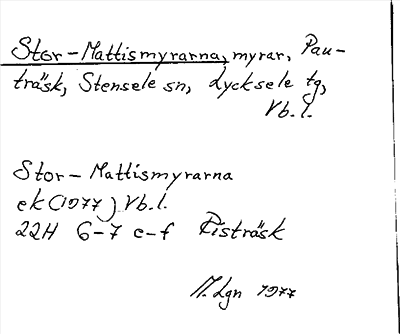 Stor-Mattismyrarna, myrar, Pau-
träsk, Stensele sn, Lycksele tg,
Vb. l.
Stor-Mattismyrarna
ek (1977) Vb. l.
22H 6-7 e-f Risträsk
Lgn 1977